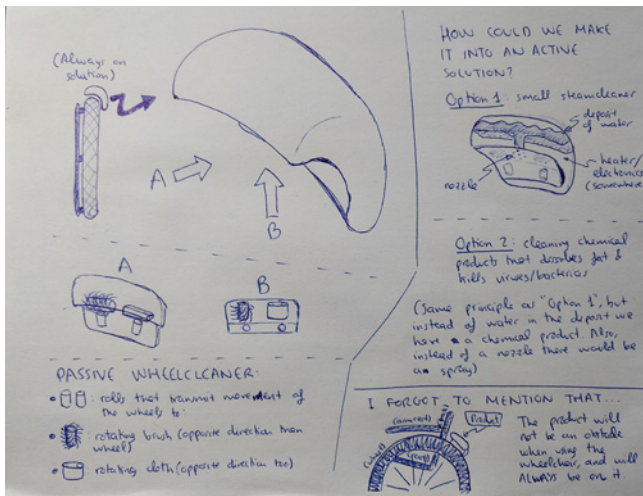 (Always on
solution)
A
B
A
B
PASSIVE WHEELCLEANER:
: rolls that transmit movement of
the wheels to:
: rotating brush (opposite direction than
wheels)
: rotating cloth (opposite direction too)
HOW COULD WE MAKE
IT INTO AN ACTIVE
SOLUTION?
Option 1: small steamcleaner
deposit
of water
heater/
electronics
(somewhere)
nozzle
Option 2: cleaning chemical
products that dissolves fat &
kills viruses/bacterias
(Same principle as "Option 1", but
instead of water in the deposit we
have a chemical product. Also,
instead of a nozzle there would be
a spray)
I FORGOT TO MENTION THAT...
(armrest)
Product
(wheel)
The product will
not be an obstacle
when using the
wheelchair, and will
ALWAYS be on it.